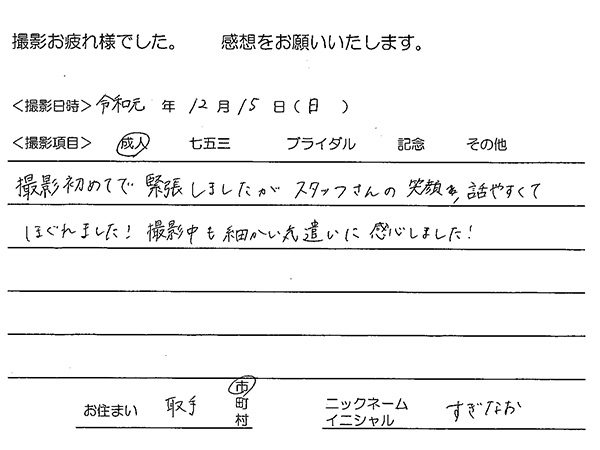 撮影お疲れ様でした。 感想をお願いいたします。
<撮影日時> 令和元 年 12 月 15 日 ( 日 )
<撮影項目> 成人 七五三 ブライダル 記念 その他
撮影初めてで緊張しましたがスタッフさんの笑顔や話やすくて
ほぐれました！撮影中も細かい気遣いに感心しました！
お住まい 取手 市町村 ニックネームイニシャル すぎなお